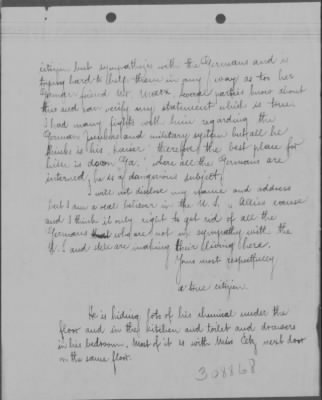 citizen but sympathizes with the Germans and is
trying hard to help them in any way as to her
German friend Mr. Marx several parties know about
this and can verify my statement which is true
I had many fights with him regarding the
German people and military system but all he
thinks is his Kaiser therefore the best place for
him is down Ga. where all the Germans are
interned, he is a dangerous subject,
I will not disclose my name and address
but I am a real believer in the U.S. & Allies cause
and I think it only right to get rid of all the
Germans who are not in sympathy with the
U.S and else are making their living here.
Yours most respectfully
a true citizen.
He is hiding lots of his chemical under the
floor and in the kitchen and toilet and drawers
in his bedroom. Most of it is with Miss City next door
on the same floor.
308868